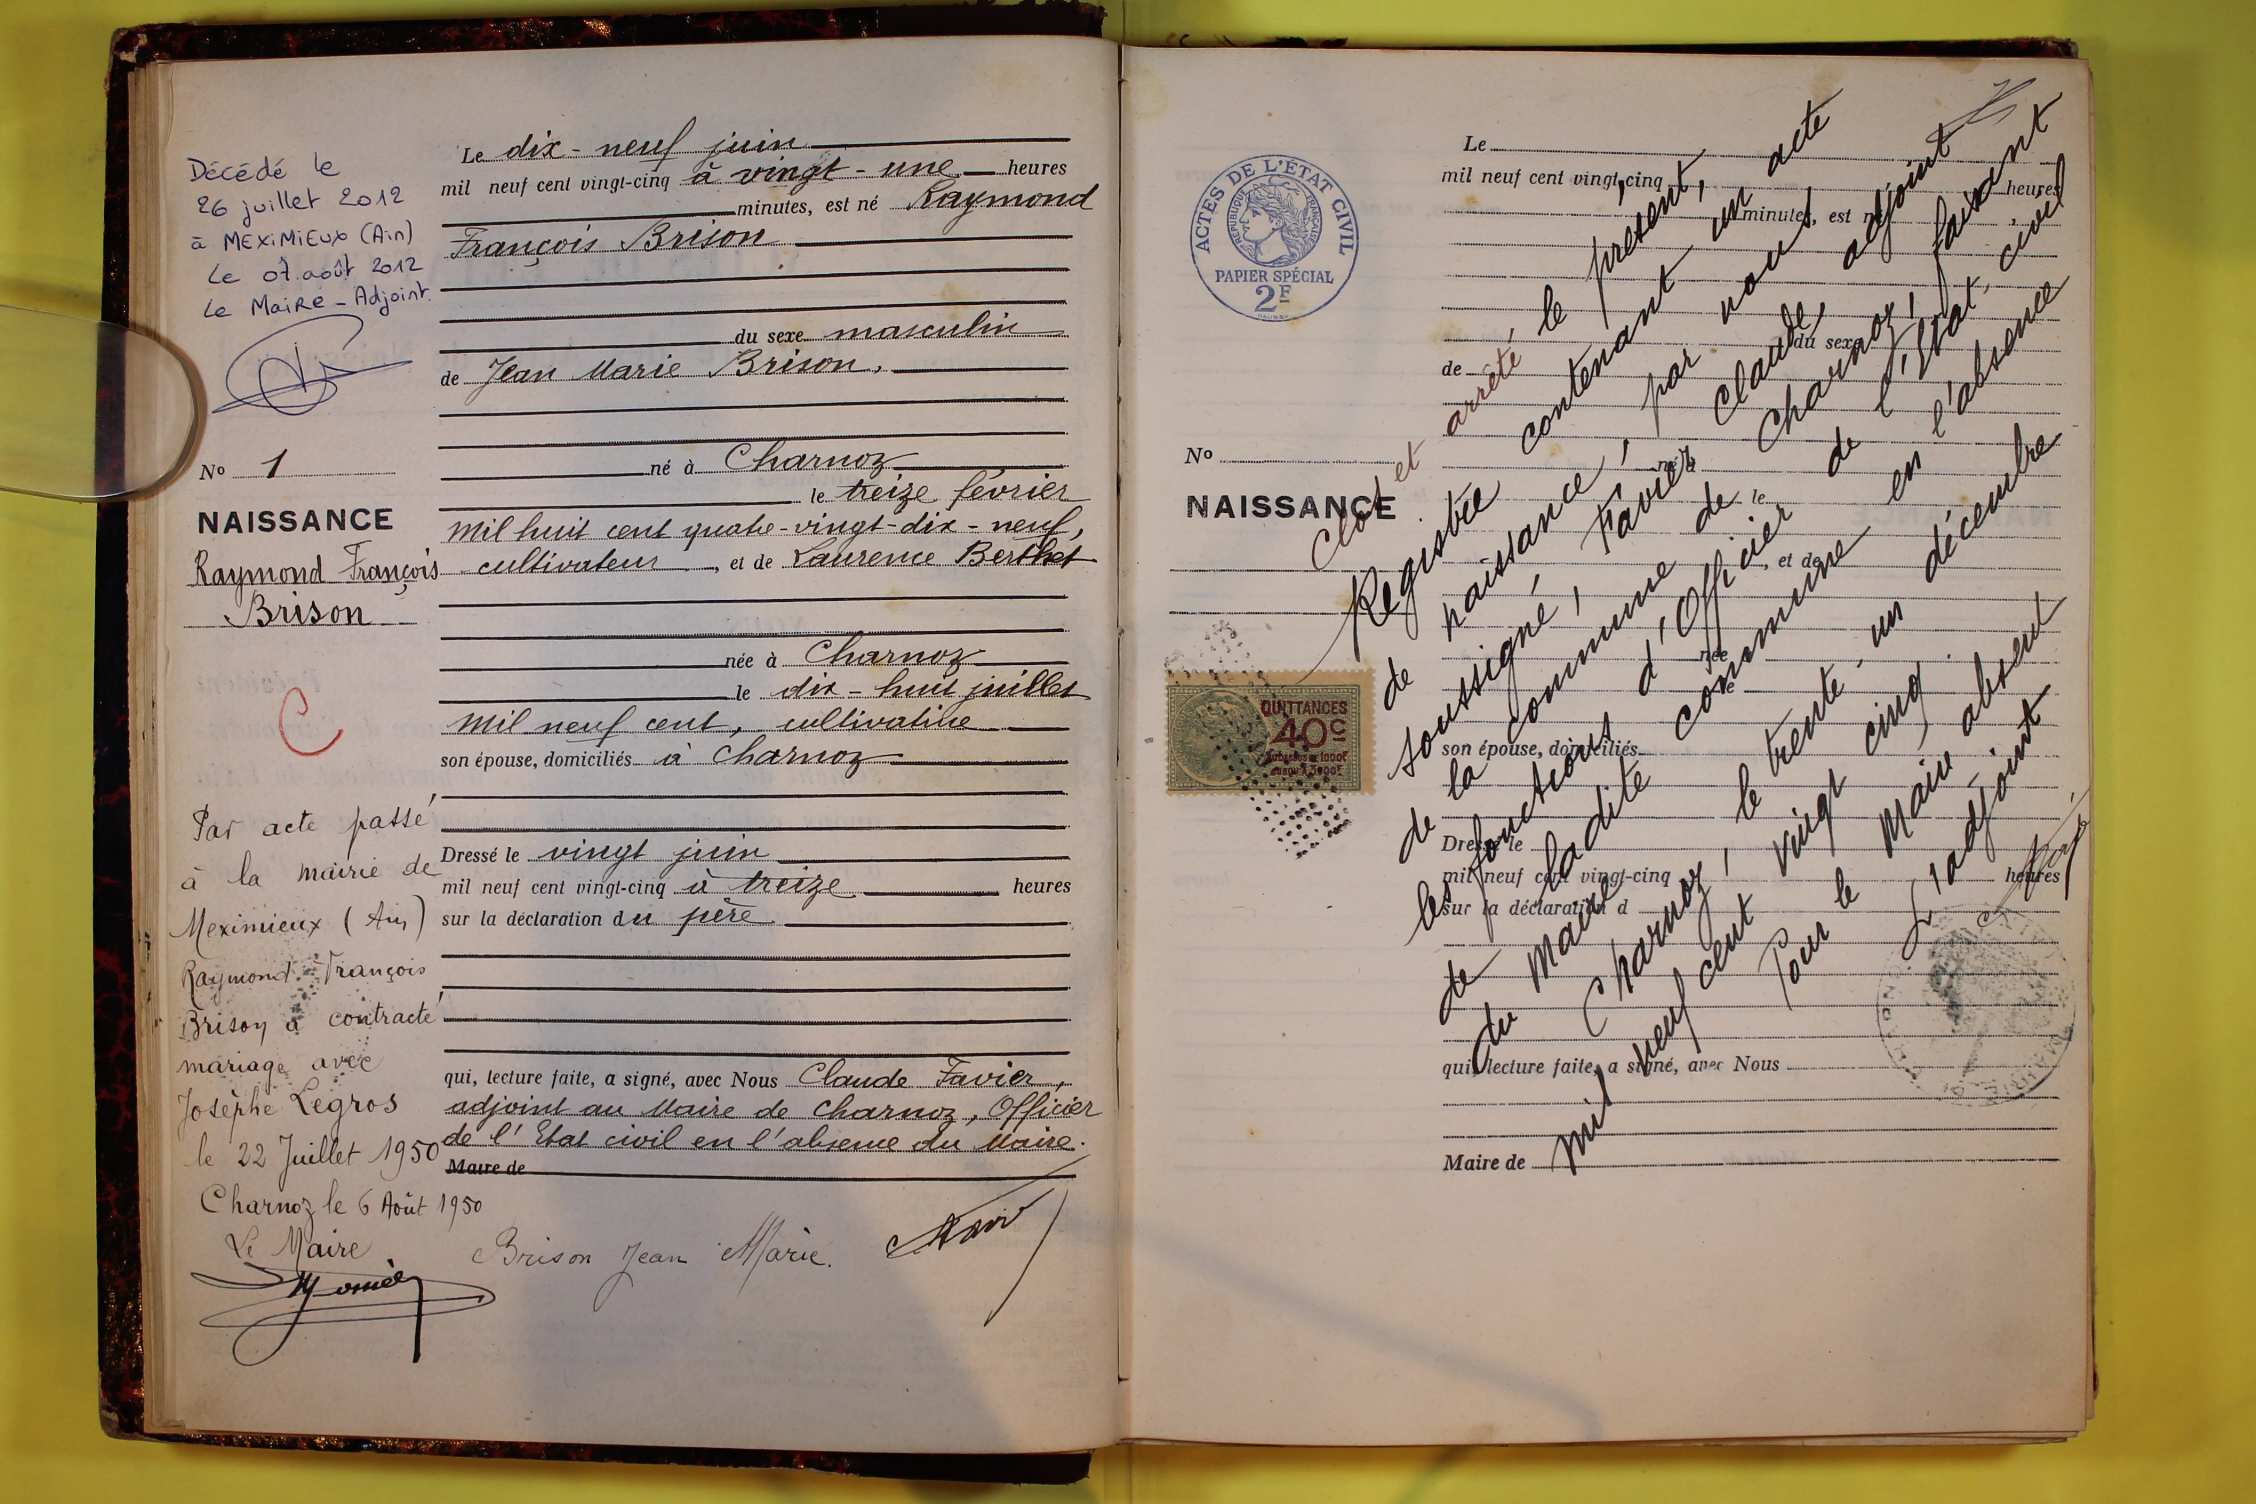 Décédé le
26 juillet 2012
à MEXIMIEUX (Ain)
Le 07 août 2012
Le Maire - Adjoint.
No 1
NAISSANCE
Raymond François
Brison
C
Par acte passé
à la mairie de
Meximieux (Ain)
Raymond François
Brison a contracté
mariage avec
Josèphe Legros
le 22 Juillet 1950
Charnoz le 6 Août 1950
Le Maire
Le dix-neuf juin
mil neuf cent vingt-cinq à vingt-une heures
minutes, est né Raymond
François Brison
du sexe masculin
de Jean Marie Brison,
né à Charnoz
le treize février
mil huit cent quatre-vingt-dix-neuf,
cultivateur, et de Laurence Berthet
née à Charnoz
le dix-huit juillet
mil neuf cent, cultivatrice
son épouse, domiciliés à Charnoz
Dressé le vingt juin
mil neuf cent vingt-cinq à treize heures
sur la déclaration du père
qui, lecture faite, a signé, avec Nous Claude Favier,
adjoint au Maire de Charnoz, Officier
de l'Etat civil en l'absence du Maire.
Maire de
Brison Jean Marie.
ACTES DE L'ÉTAT CIVIL
RÉPUBLIQUE FRANÇAISE
PAPIER SPÉCIAL
2F
No
NAISSANCE
QUITTANCES
40c
Le
mil neuf cent vingt-cinq heures
minutes, est né
du sexe
de
né à
le
, et de
née
le
son épouse, domiciliés
Dressé le
mil neuf cent vingt-cinq heures
sur la déclaration d
qui, lecture faite, a signé, avec Nous
Maire de
Clos et arrêté le présent,
Registre contenant un acte
de naissance, par nous,
soussigné, Favier Claude, adjoint
de la commune de Charnoz, faisant
les fonctions d'Officier de l'Etat-civil
de ladite commune en l'absence
du Maire
Charnoz, le trente-un décembre
mil neuf cent vingt cinq.
Pour le Maire absent
L'adjoint